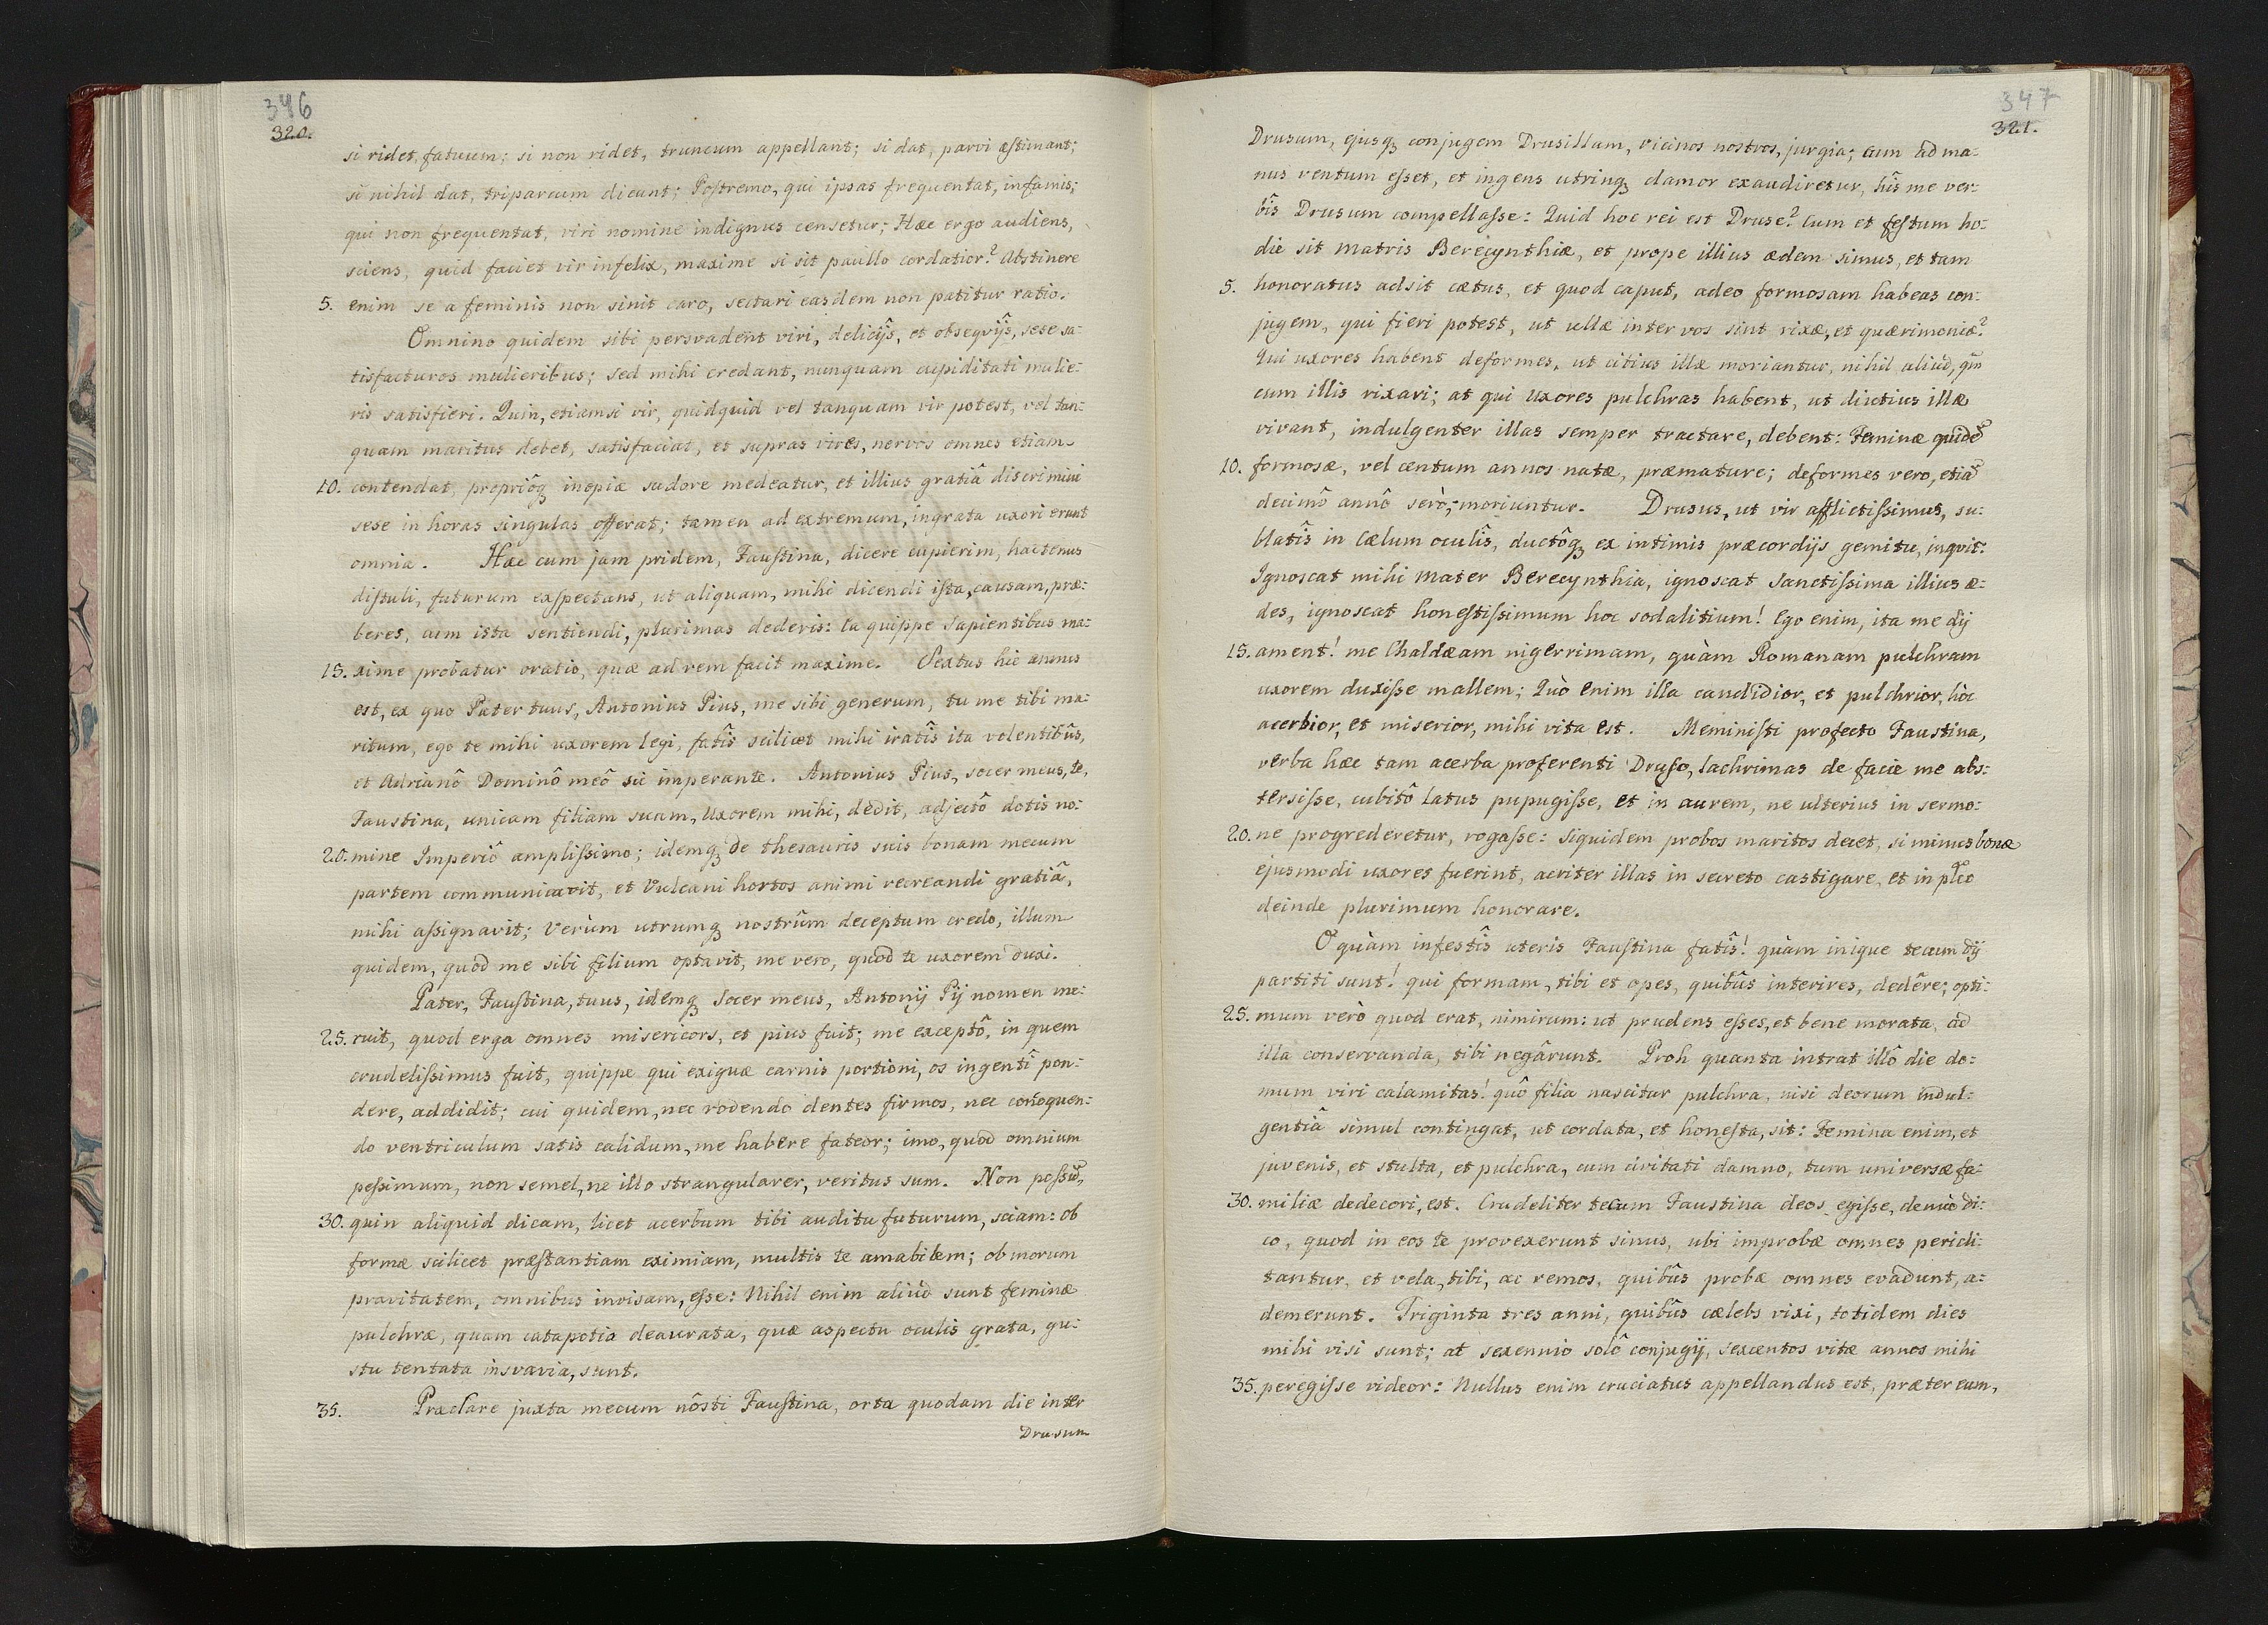 346
320.
si ridet, fatuum; si non ridet, truncum appellant; si dat, parvi æstimant;
si nihil dat, triparcum dicunt; Postremo, qui ipsas frequentat, infamis;
qui non frequentat, viri nomine indignus censetur; Hæc ergo audiens,
sciens, quid faciet vir infelix, maxime si sit paullo cordatior? Abstinere
5. enim se a feminis non sinit caro, sectari easdem non patitur ratio.
Omnino quidem sibi persvadent viri, delicijs, et obseqvijs, sese sa:
tisfacturos mulieribus; sed mihi credant, nunquam cupiditati mulie:
ris satisfieri. Quin, etiamsi vir, quidquid vel tanquam vir potest, vel tan:
quam maritus debet, satisfaciat, et supras vires, nervos omnes etiam
10. contendat, propriôq; inopiæ sudore medeatur, et illius gratiâ discrimini
sese in horas singulas offerat; tamen ad extremum, ingrata uxori erunt
omnia. Hæc cum jam pridem, Faustina, dicere cupierim, hactenus
distuli, futurum exspectans, ut aliquam, mihi dicendi ista, causam, præ:
beres, cum ista sentiendi, plurimas dederis: Ea quippe Sapientibus ma:
15. xime probatur oratio, quæ ad rem facit maxime. Sextus hic annus
est, ex quo Pater tuus, Antonius Pius, me sibi generum, tu me tibi ma:
ritum, ego te mihi uxorem legi, fatîs scilicet mihi iratîs ita volentibûs,
et Adrianô Dominô meô sic imperante. Antonius Pius, socer meus, te,
Faustina, unicam filiam suam, Uxorem mihi, dedit, adjectô dotis no:
20. mine Imperiô amplissimo; idemq; de thesauris suis bonam mecum
partem communicavit, et Vulcani hortos animi recreandi gratiâ,
mihi assignavit; Verùm utrumq; nostrûm deceptum credo, illum
quidem, quòd me sibi filium optavit, me vero, quòd te uxorem duxi.
Pater, Faustina, tuus, idemq; Socer meus, Antonij Pij nomen me:
25. ruit, quod erga omnes misericors, et pius fuit; me exceptô, in quem
crudelissimus fuit, quippe qui exiguæ carnis portioni, os ingenti pon:
dere, addidit; cui quidem, nec rodendo dentes firmos, nec concoquen:
do ventriculum satis calidum, me habere fateor; imo, quod omnium
pessimum, non semel, ne illo strangularer, veritus sum. Non possũ,
30. quin aliquid dicam, licet acerbum tibi auditu futurum, sciam: ob
formæ scilicet præstantiam eximiam, multis te amabilem; ob morum
pravitatem, omnibus invisam, esse: Nihil enim aliud sunt feminæ
pulchræ, quam catapotia deaurata, quæ aspectu oculis grata, gu:
stu tentata insvavia, sunt.
35. Præclare juxta mecum nôsti Faustina, orta quodam die inter
Drusum
347
321.
Drusum, ejusq; conjugem Drusillam, vicinos nostros, jurgia; cum ad ma:
nus ventum esset, et ingens utrinq; clamor exaudiretur, hîs me ver:
bîs Drusum compellasse: Quid hoc rei est Druse? Cum et festum ho:
die sit Matris Berecynthiæ, et prope illius ædem simus, et tam
5. honoratus adsit cætus, et quod caput, adeo formosam habeas con:
jugem, qui fieri potest, ut ullæ inter vos sint rixæ, et quærimoniæ?
Qui uxores habent deformes, ut citius illæ moriantur, nihil aliud, qm̃
cum illis rixari; at qui Uxores pulchras habent, ut diutius illæ
vivant, indulgenter illas semper tractare, debent: Feminæ quidẽ
10. formosæ, vel centum annos natæ, præmature; deformes vero, etiã
decimô annô serò, moriuntur. Drusus, ut vir afflictissimus, su:
blatîs in Cælum oculîs, ductôq; ex intimis præcordijs gemitu, inqvit:
Ignoscat mihi Mater Berecynthia, ignoscat Sanctissima illius æ:
des, ignoscat honestissimum hoc sodalitium! Ego enim, ita me dij
15. ament! me Chaldæam nigerrimam, quàm Romanam pulchram
uxorem duxisse mallem; Quò enim illa candidior, et pulchrior, hòc
acerbior, et miserior, mihi vita est. Meministi profecto Faustina,
verba hæc tam acerba proferenti Druso, lachrimas de facie me abs:
tersisse, cubitô latus pupugisse, et in aurem, ne ulterius in sermo:
20. ne progrederetur, rogasse: Siquidem probos maritos decet, si minus bonæ
ejusmodi uxores fuerint, acriter illas in secreto castigare, et in plĩco
deinde plurimum honorare.
O quàm infestîs uteris Faustina fatîs! quàm inique tecum dij
partiti sunt! qui formam, tibi et opes, quibûs interires, dedêre; opti:
25. mum verò quod erat, nimirum: ut prudens esses, et bene morata, ad
illa conservanda, tibi negârunt. Proh quanta intrat illô die do:
mum viri calamitas! quô filia nascitur pulchra, nisi deorum indul:
gentiâ simul contingat, ut cordata, et honesta, sit: Femina enim, et
juvenis, et stulta, et pulchra, cum civitati damno, tum universæ fa:
30. miliæ dedecori, est. Crudeliter tecum Faustina deos egisse, denuo di:
co, quod in eos te provexerunt sinus, ubi improbæ omnes pericli:
tantur, et vela, tibi, ac remos, quibûs probæ omnes evadunt, a:
demerunt. Triginta tres anni, quibûs cælebs vixi, totidem dies
mihi visi sunt; at sexennio solô conjugij, sexcentos vitæ annos mihi
35. peregisse videor: Nullus enim cruciatus appellandus est, præter eum,